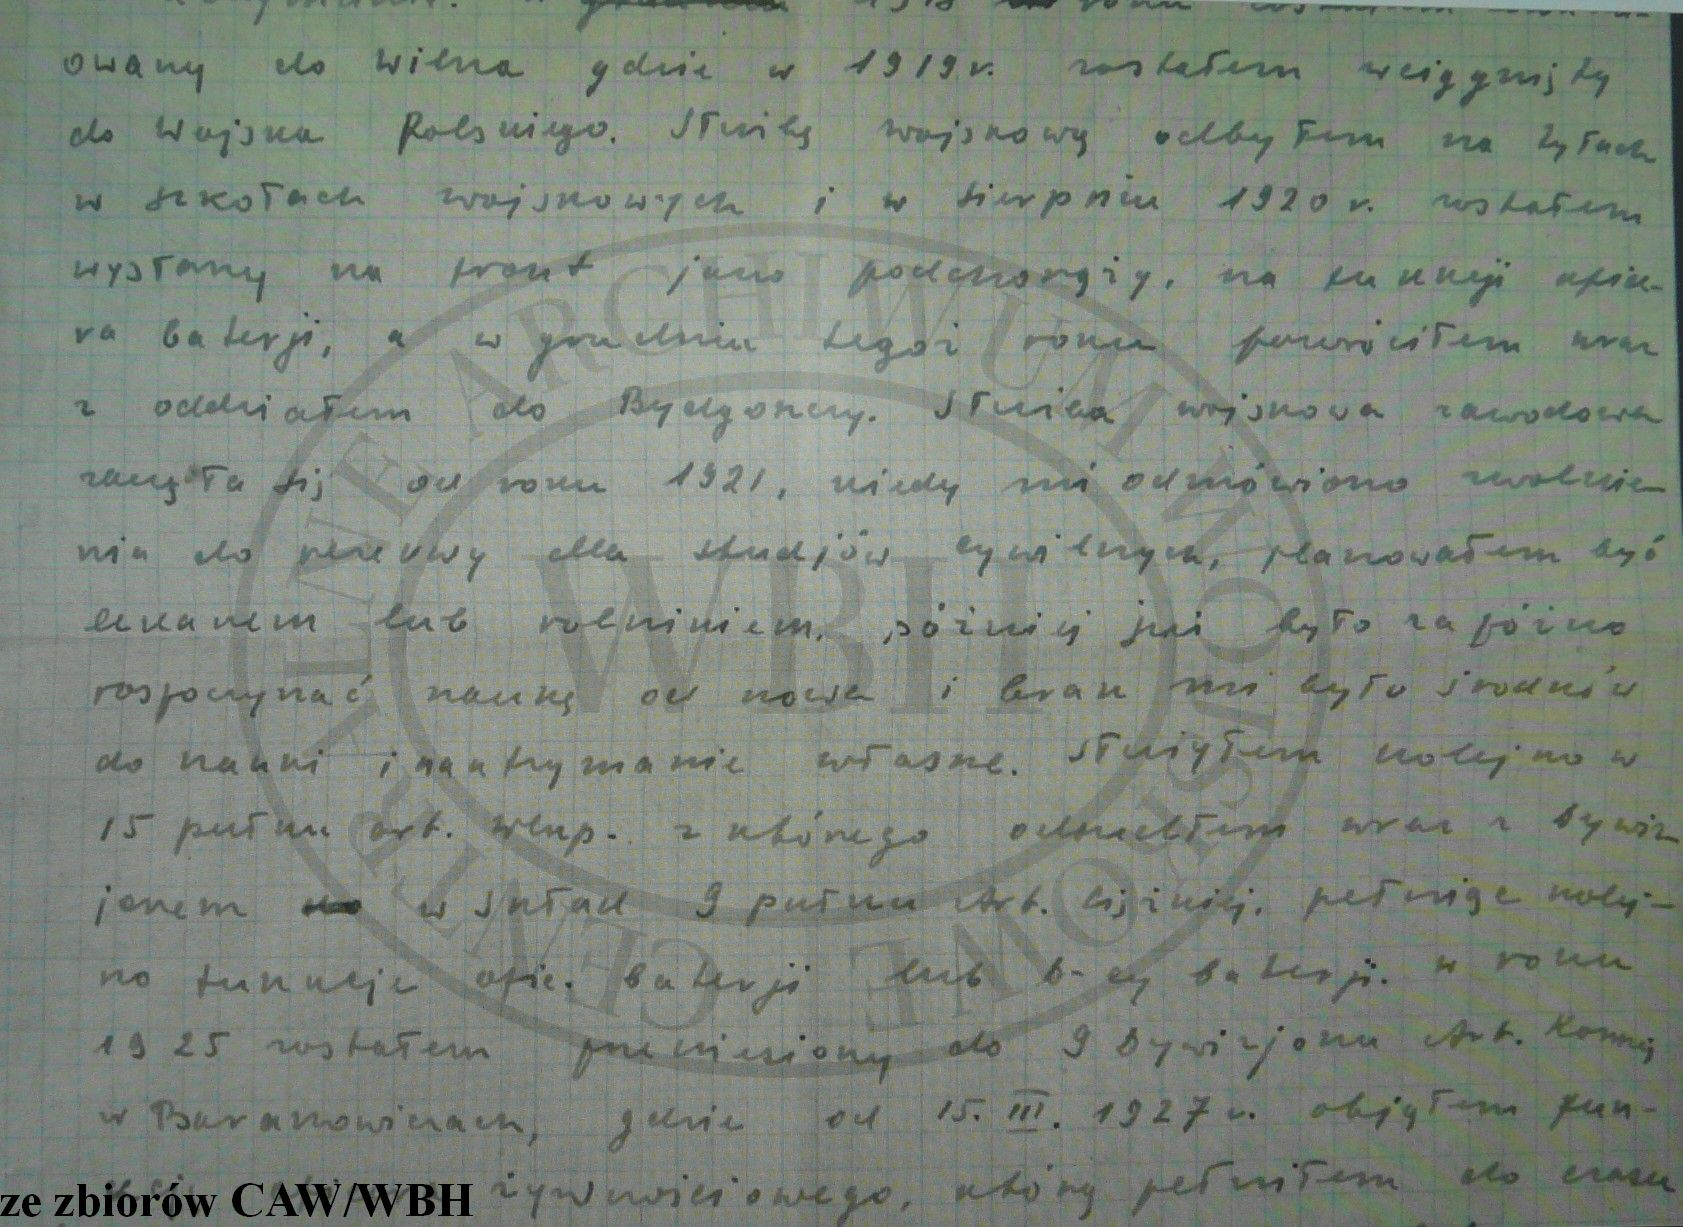 1918 roku zostałem
owany do Wilna gdzie w 1919 r. zostałem wciągnięty
do Wojska Polskiego. Służbę wojskową odbyłem na tyłach
w szkołach wojskowych i w sierpniu 1920 r. zostałem
wysłany na front jako podchorąży, na funkcji ofice-
ra baterji, a w grudniu tegoż roku powróciłem wraz
z oddziałem do Bydgoszczy. Służba wojskowa zawodowa
zaczęła się od roku 1921, kiedy mi odmówiono zwolnie-
nia do rezerwy dla studjów cywilnych, planowałem być
lekarzem lub rolnikiem, później już było za późno
rospoczynać naukę od nowa i brak mi było środków
do nauki i na utrzymanie własne. Służyłem kolejno w
15 pułku art. wlkp. z którego odszedłem wraz z dywiz-
jonem w skład 9 pułku Art. Ciężkiej. pełniąc kolej-
no funkcje ofic. baterji lub d-cy baterji. w roku
1925 zostałem przeniesiony do 9 Dywizjonu Art. Konnej
w Baranowiczach, gdzie od 15. III. 1927 r. objąłem fun-
żywnościowego, którą pełniłem do czasu
CENTRALNE ARCHIWUM WOJSKOWE
WBH
ze zbiorów CAW/WBH